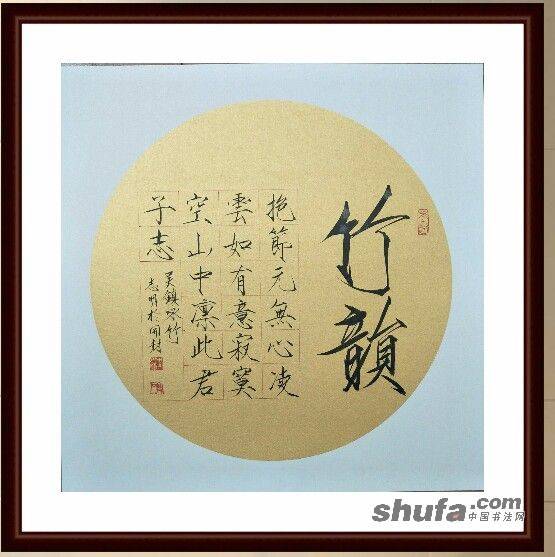 竹韻
抱節元無心凌
雲如有意寂寞
空山中凜此君
子志
吴鎮咏竹
志明於開封
shufa.com
中国书法网